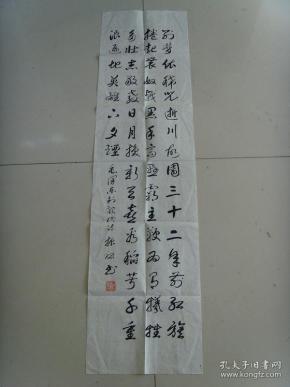 别梦依稀咒逝川故园三十二年前红旗
卷起农奴戟黑手高悬霸主鞭为有牺牲
多壮志敢教日月换新天喜看稻菽千重
浪遍地英雄下夕烟
毛泽东
孔夫子旧书网